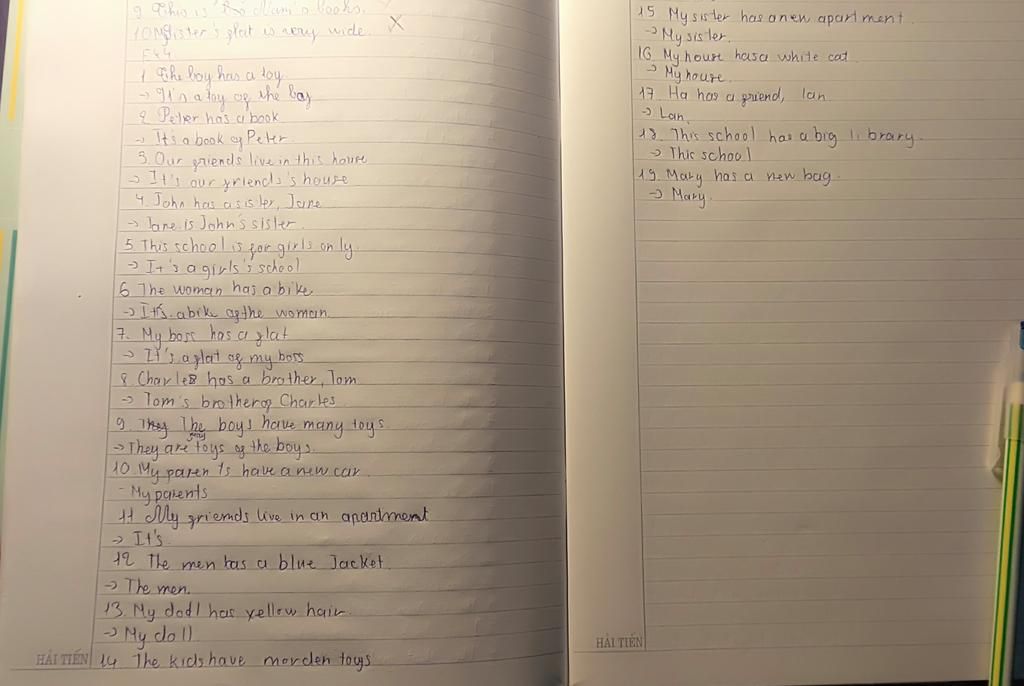 9 This is Nam's books.
10 My sister's flat is very wide. X
1 The boy has a toy
→ It's a toy of the boy
2 Peter has a book
→ It's a book of Peter
3. Our friends live in this house
→ It's our friends's house
4. John has a sister, Jane
→ Jane is John's sister.
5 This school is for girls only.
→ It's a girls's school
6 The woman has a bike
→ It's a bike of the woman
7. My boss has a flat
→ It's a flat of my boss
8 Charles has a brother, Tom
→ Tom's brother of Charles
9. The boys have many toys.
→ They are toys of the boys.
10. My parents have a new car
- My parents
11 My friends live in an apartment
→ It's
12 The men has a blue Jacket.
→ The men.
13. My doll has yellow hair
→ My doll
HẢI TIẾN
14 The kids have morden toys
15 My sister has a new apartment.
→ My sister.
16 My house has a white cat
→ My house.
17. Ha has a friend, lan
→ Lan.
18. This school has a big library.
→ This school
19. Mary has a new bag.
→ Mary.
HẢI TIẾN